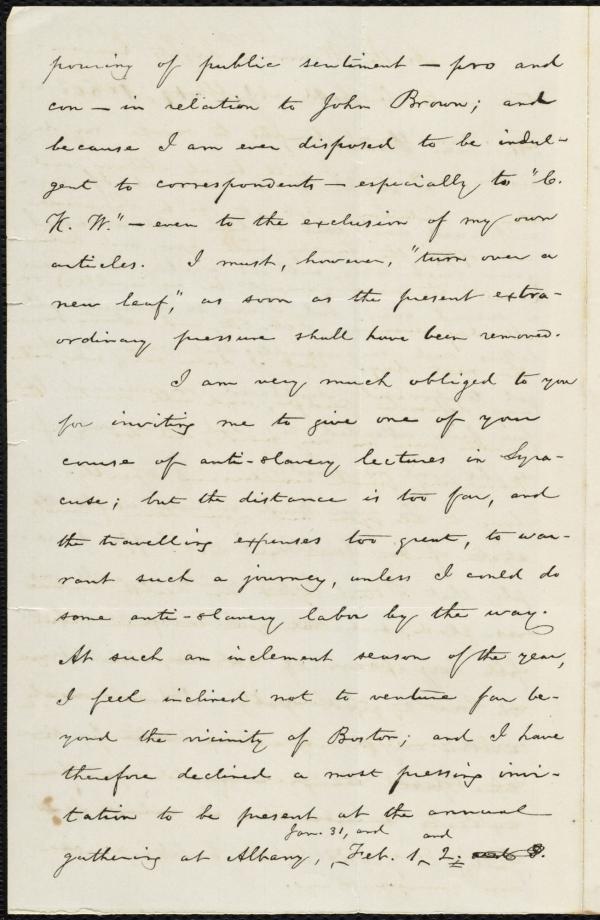 pouring of public sentiment — pro and
con — in relation to John Brown; and
because I am ever disposed to be indul-
gent to correspondents — especially to "C.
K. W." — even to the exclusion of my own
articles. I must, however, "turn over a
new leaf," as soon as the present extra-
ordinary pressure shall have been removed.
I am very much obliged to you
for inviting me to give one of your
course of anti-slavery lectures in Syra-
cuse; but the distance is too far, and
the travelling expenses too great, to war-
rant such a journey, unless I could do
some anti-slavery labor by the way.
At such an inclement season of the year,
I feel inclined not to venture far be-
yond the vicinity of Boston; and I have
therefore declined a most pressing invi-
tation to be present at the annual
Jan. 31, and and
gathering at Albany, Feb. 1, 2. and 3.